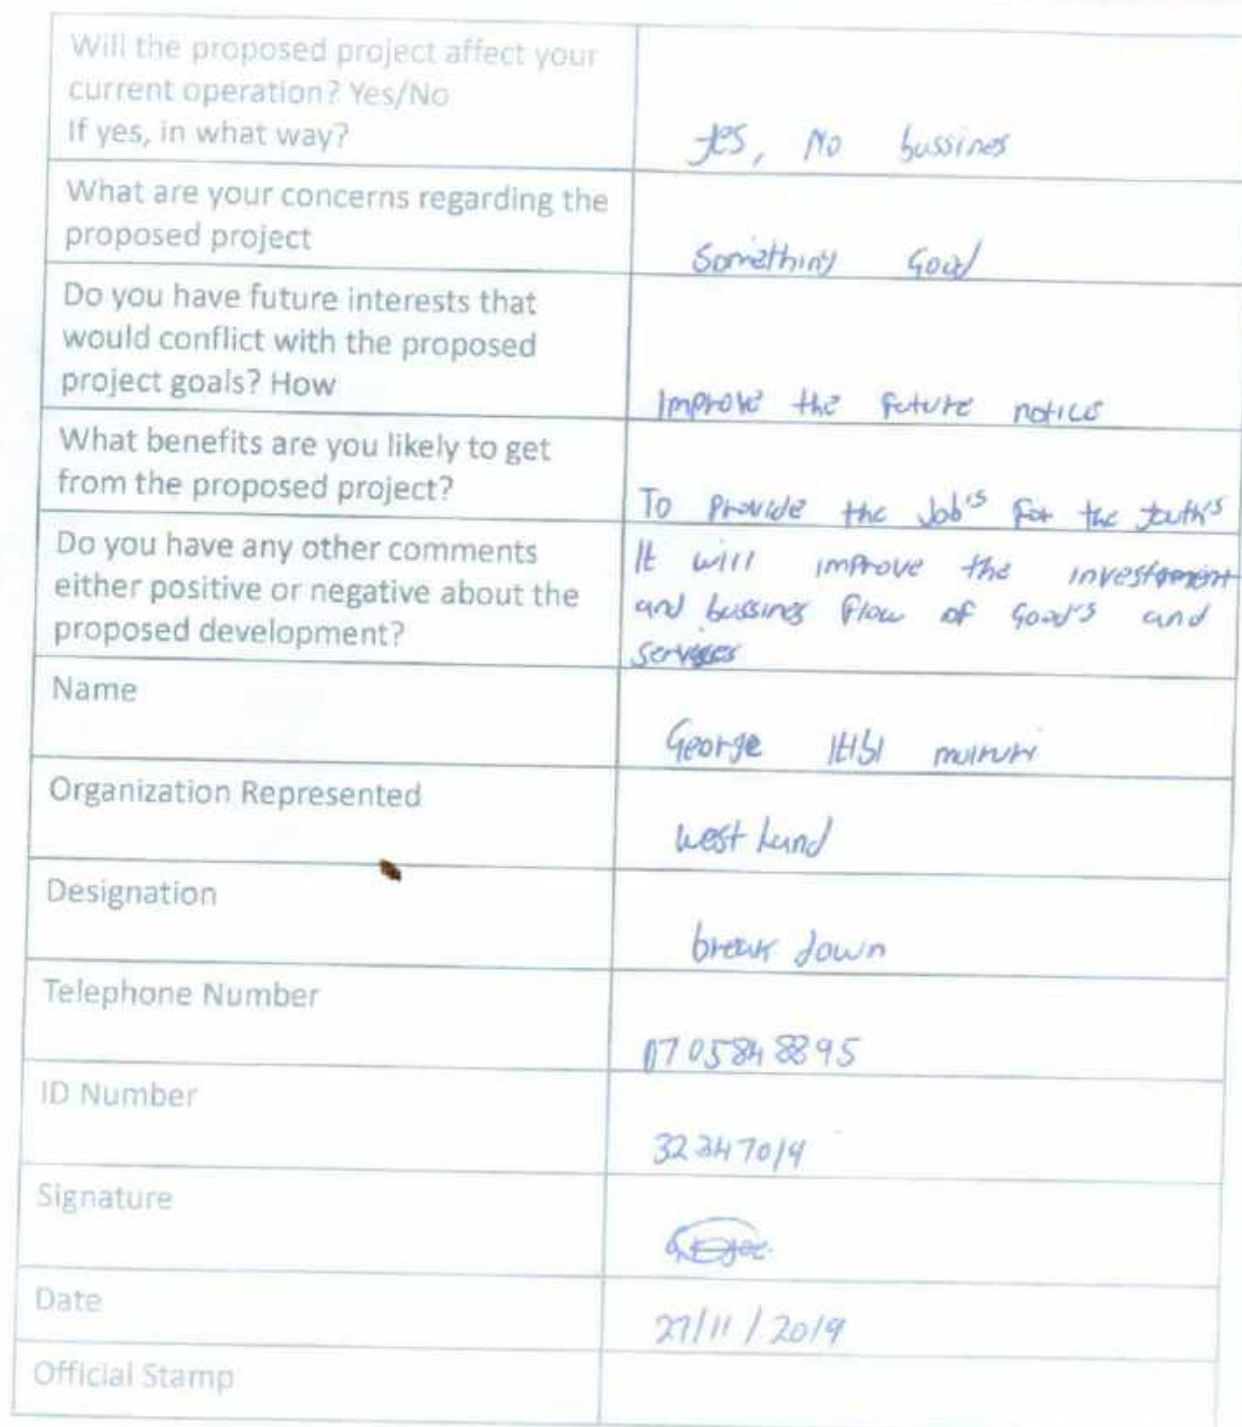 Will the proposed project affect your
current operation? Yes/No
If yes, in what way?
yes, No bussines
What are your concerns regarding the
proposed project
Something Good
Do you have future interests that
would conflict with the proposed
project goals? How
Improve the future notice
What benefits are you likely to get
from the proposed project?
To Provide the Job's for the youth's
Do you have any other comments
either positive or negative about the
proposed development?
It will improve the investment
and bussines flow of Good's and
services
Name
George muiruri
Organization Represented
west Land
Designation
break down
Telephone Number
0705848895
ID Number
Signature
Date
27/11/2019
Official Stamp